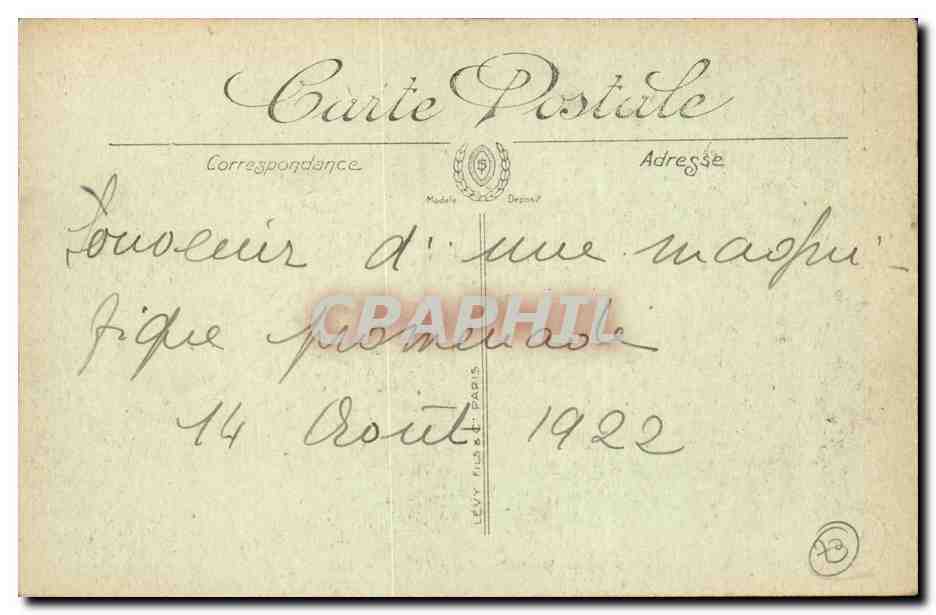 Carte Postale
Correspondance
Adresse
Modèle Déposé
Souvenir d'une magni-
fique promenade
14 Août 1922
CRAPHIL
LÉVY FILS & Cie PARIS
73